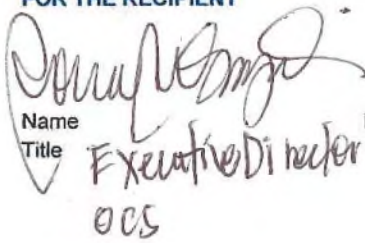 FOR THE RECIPIENT
Name
Title Executive Director
OCS